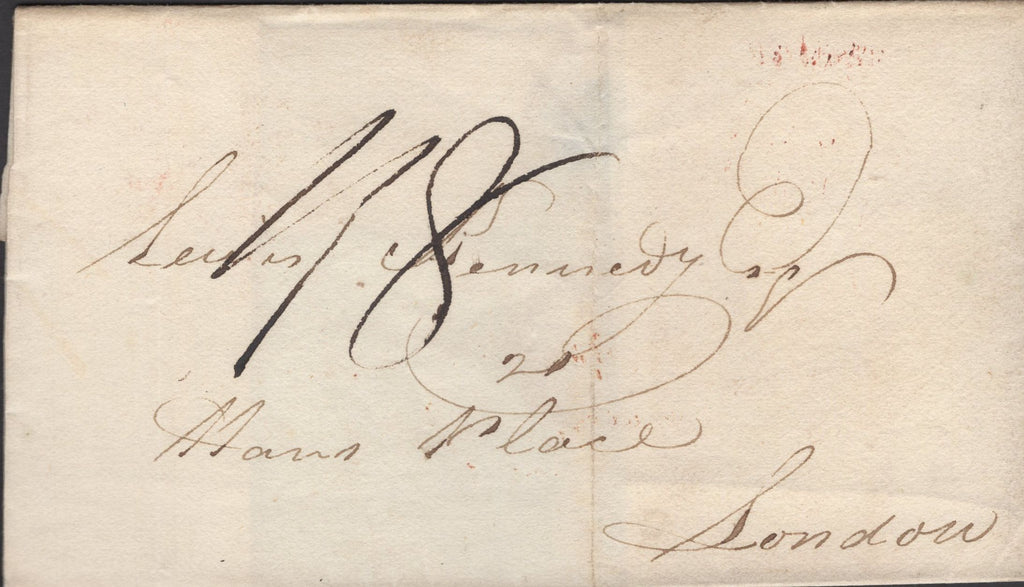 1/8
Lewis Kennedy Esqr
20
Hans Place
London